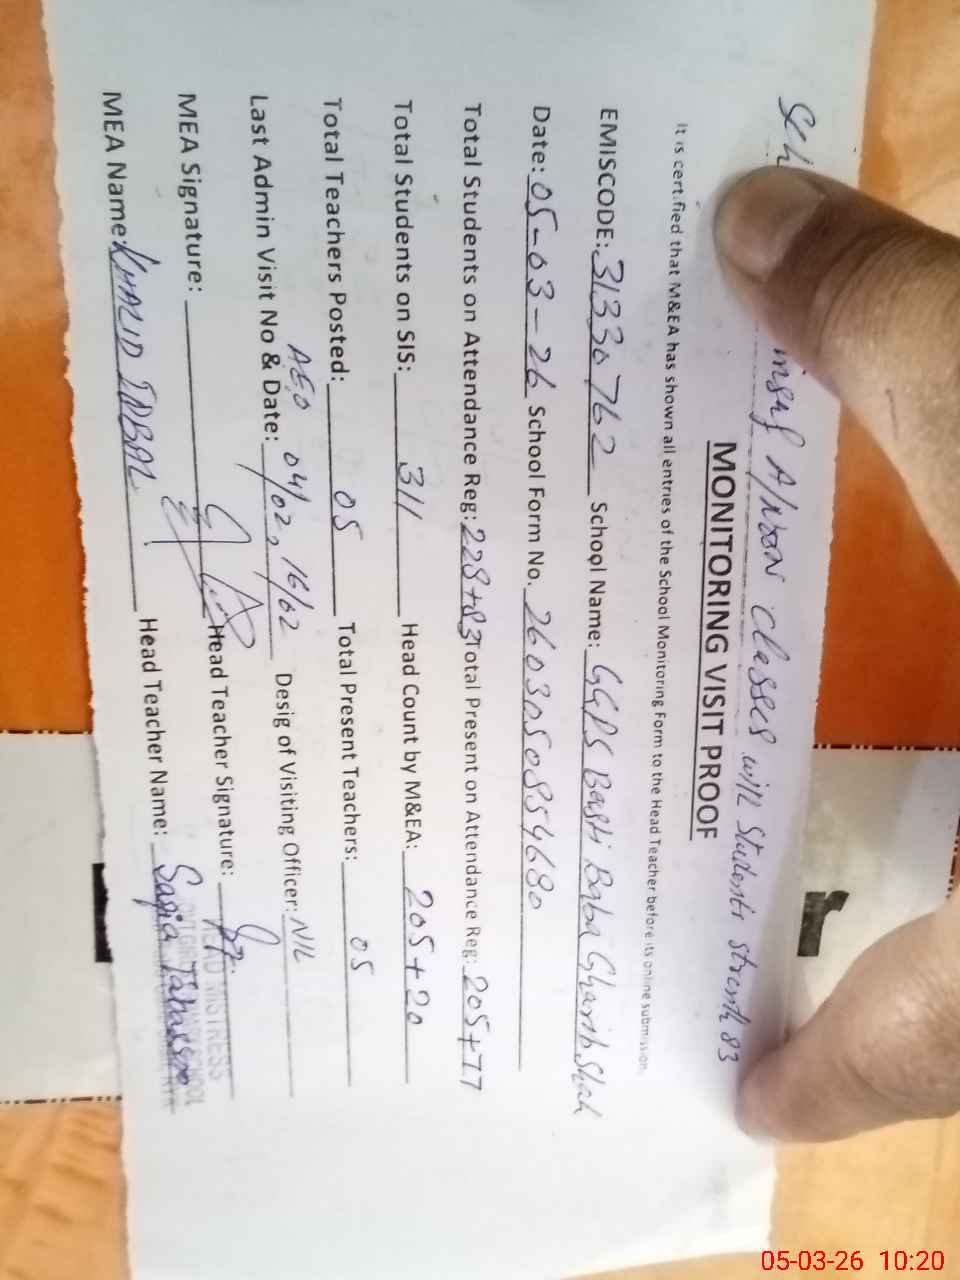 insaf A/noon classes will students strenth 83
MONITORING VISIT PROOF
It is certified that M&EA has shown all entries of the School Monitoring Form to the Head Teacher before its online submission.
EMISCODE: 31330762 School Name: GGPS Basti Baba Gharib Shah
Date: 05-03-26 School Form No. 2603050854680
Total Students on Attendance Reg: 228+83 Total Present on Attendance Reg: 205+77
Total Students on SIS: 311 Head Count by M&EA: 205+20
Total Teachers Posted: 05 Total Present Teachers: 05
AEO
Last Admin Visit No & Date: 04/02, 16/02 Desig of Visiting Officer: NIL
MEA Signature: Head Teacher Signature:
MEA Name: KHALID IQBAL Head Teacher Name: Safia Tabassum
HEAD MISTRESS
05-03-26 10:20